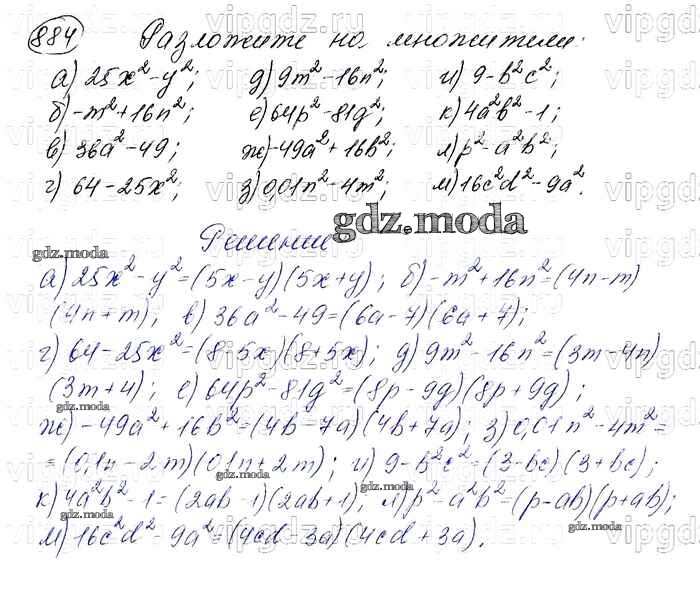 884 Разложите на множители:
а) 25x² - y²; д) 9m² - 16n²; и) 9 - b²c²;
б) -m² + 16n²; е) 64p² - 81q²; к) 4a²b² - 1;
в) 36a² - 49; ж) -49a² + 16b²; л) p² - a²b²;
г) 64 - 25x²; з) 0,01n² - 4m²; м) 16c²d² - 9a².
Решение
gdz.moda
gdz.moda
а) 25x² - y² = (5x - y)(5x + y); б) -m² + 16n² = (4n - m)
(4n + m); в) 36a² - 49 = (6a - 7)(6a + 7);
г) 64 - 25x² = (8 - 5x)(8 + 5x); д) 9m² - 16n² = (3m - 4n)
(3m + 4); е) 64p² - 81q² = (8p - 9q)(8p + 9q);
gdz.moda
ж) -49a² + 16b² = (4b - 7a)(4b + 7a); з) 0,01n² - 4m² =
= (0,1n - 2m)(0,1n + 2m); и) 9 - b²c² = (3 - bc)(3 + bc);
gdz.moda
к) 4a²b² - 1 = (2ab - 1)(2ab + 1); л) p² - a²b² = (p - ab)(p + ab);
gdz.moda
gdz.moda
gdz.moda
м) 16c²d² - 9a² = (4cd - 3a)(4cd + 3a).